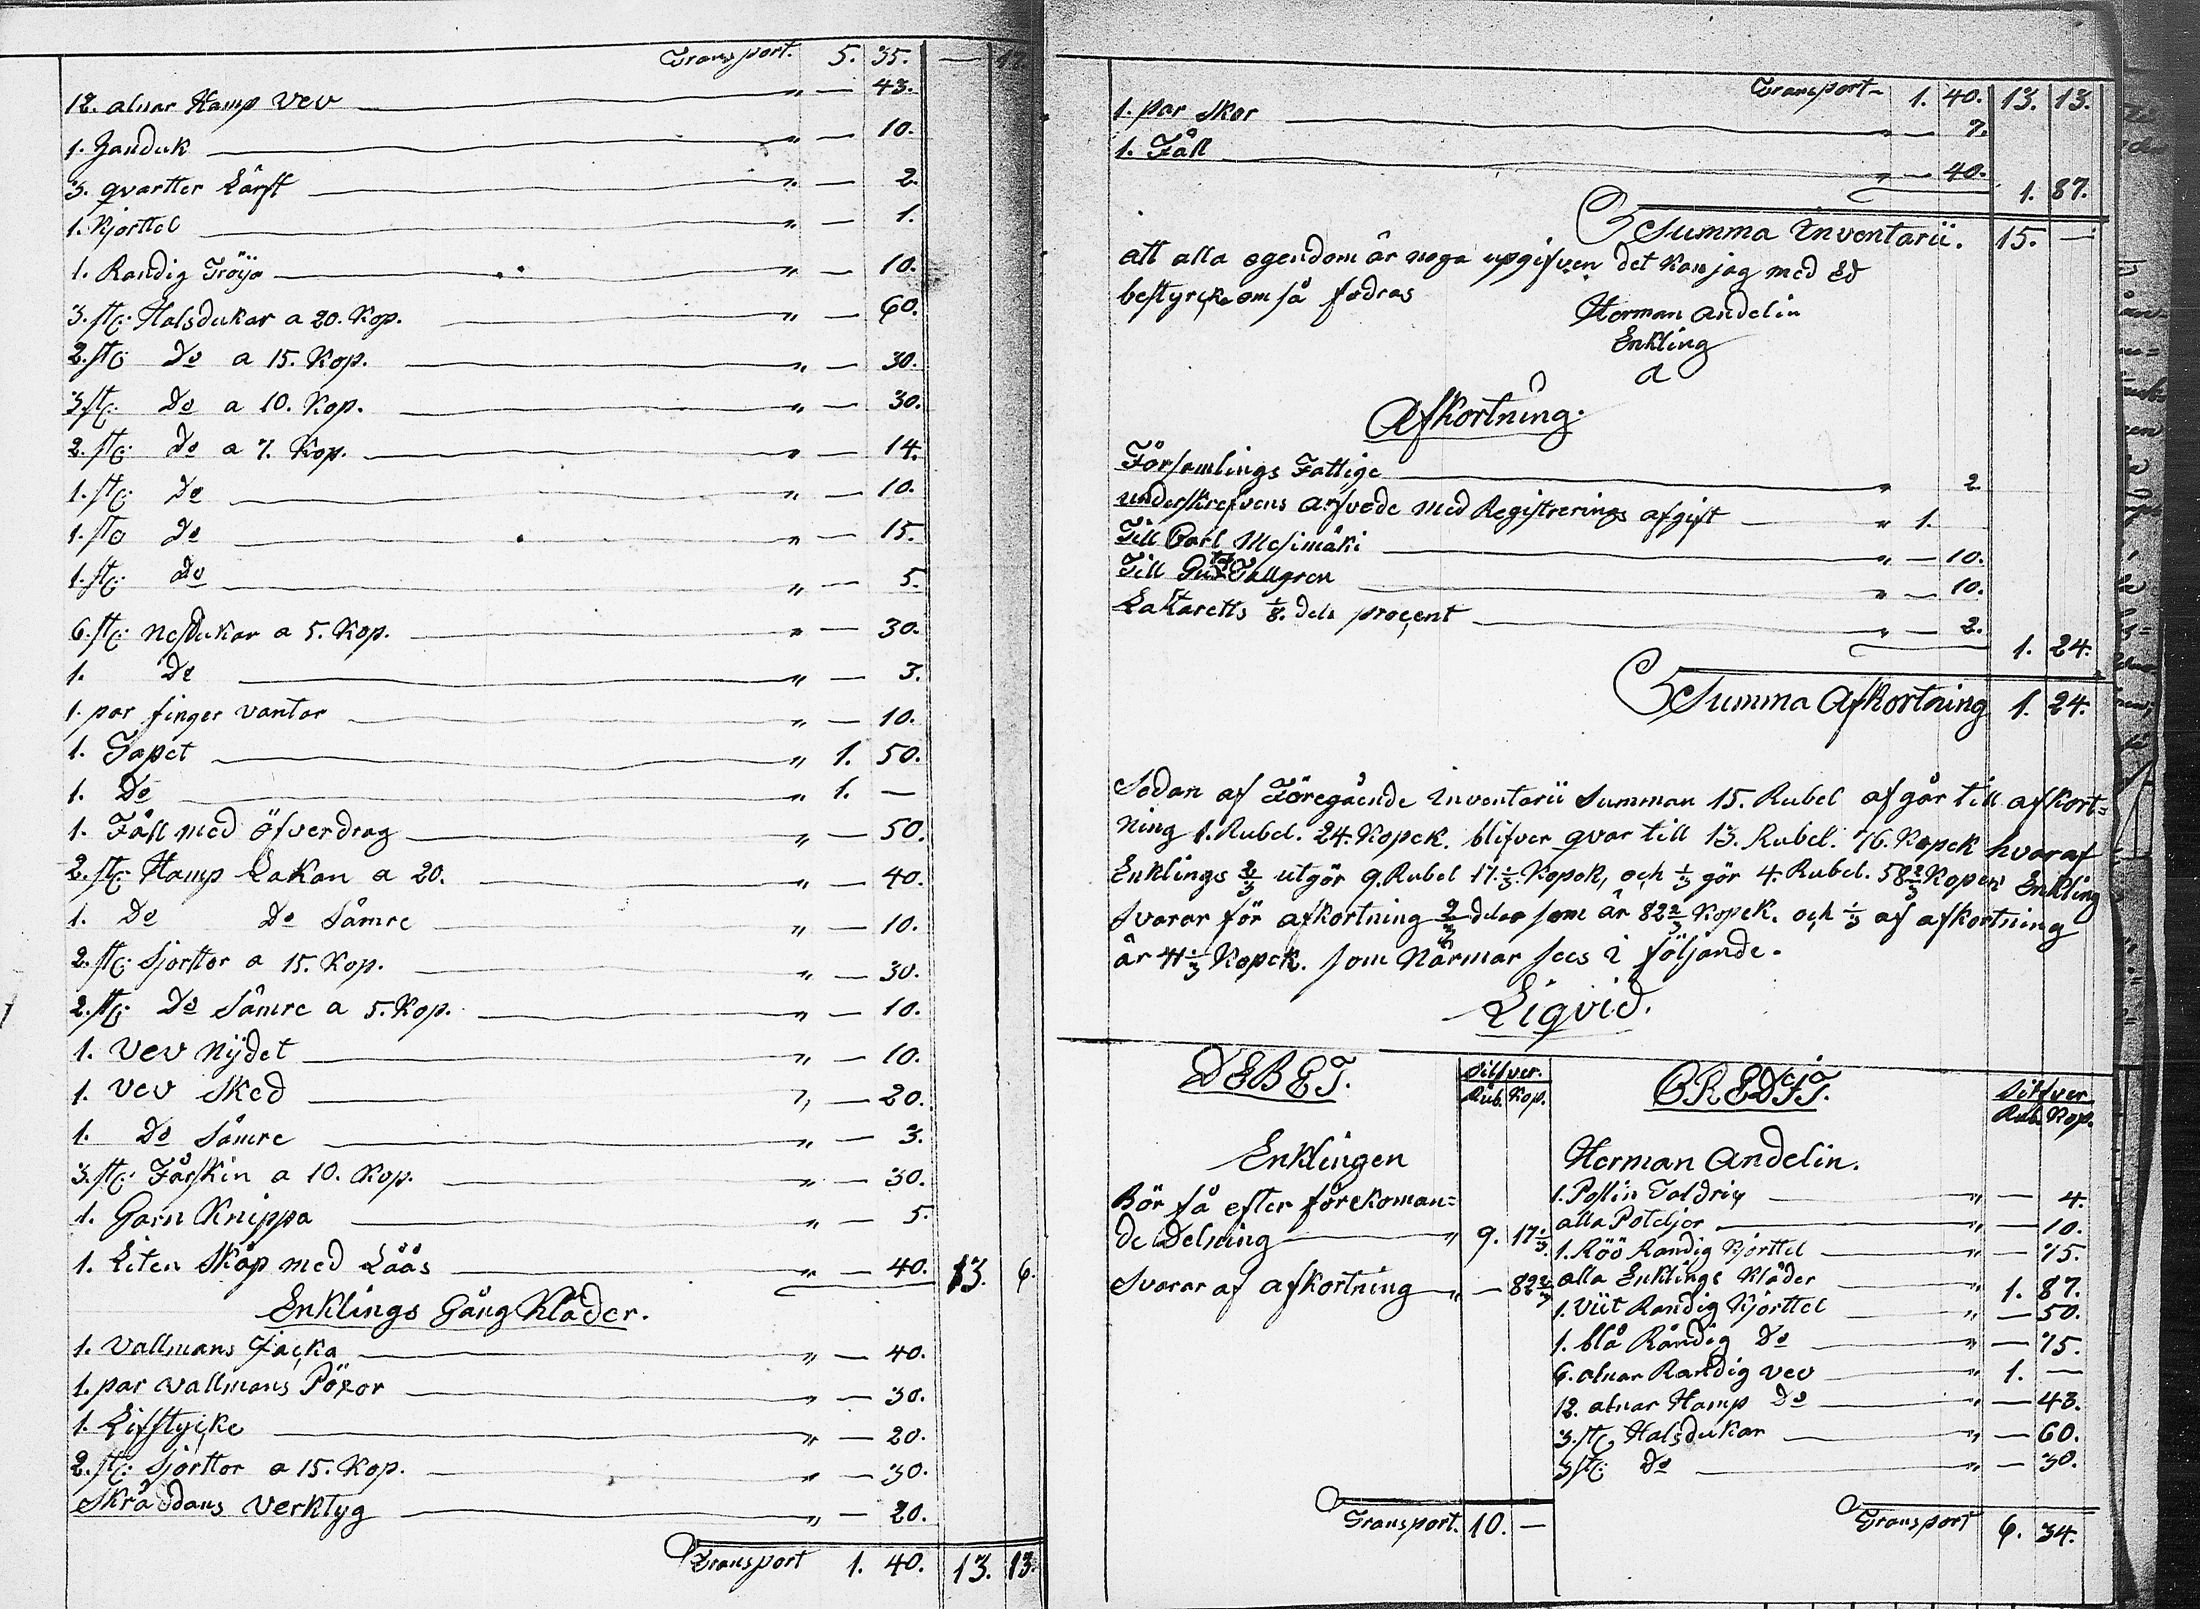 Transport. 5. 35. —
12. alnar Hamp Vev " — 43.
1. Handuk " — 10.
3. qvartter Lärft " — 2.
1. Kjorttel " — 1.
1. Randig Tröÿa " — 10.
3. stc: Halsdukar a 20. Kop. " — 60.
2. stc Do a 15. Kop. " — 30.
3 stc: Do a 10. Kop. " — 30.
2. stc: Do a 7. Kop. " — 14.
1. stc: Do " — 10.
1. stc Do " — 15.
1. stc: Do " — 5.
6. stc: nesdukar a 5. Kop. " — 30.
1. Do " — 3.
1. par finger vantar " — 10.
1. Tapet " 1. 50.
1. Do " 1. —
1. Fäll med öfverdrag " — 50.
2. stc: Hamp Lakan a 20. " — 40.
1. Do Do Sämre " — 10.
2. stc: Sjorttor a 15. Kop. " — 30.
2. stc: Do Sämre a 5. Kop. " — 10.
1. Vev Nÿdet " — 10.
1. Vev Sked " — 20.
1. Do Sämre " — 3.
3. stc: Fårskin a 10. Kop. " — 30.
1. Garn Knippa " — 5.
1. Liten Skåp med Låås " — 40. 13. 6.
Enklings Gång Kläder.
1. Vallmans Jacka " — 40.
1. par Vallmans Pöxor " — 30.
1. Lifstycke " — 20.
2. stc: Sjorttor a 15. Kop. " — 30.
Skräddans Verktyg " — 20.
Transport 1. 40. 13. 13.
Transport 1. 40. 13. 13.
1. par Skor " — 7.
1. Fäll " — 40.
1. 87.
Summa Inventarii. 15. —
att alla egendom är noga upgifven det kan jag med Ed
bestyrcka om så fodras
Herman Andelin
Enkling
a
Afkortning.
Församlings Fattige " 2
underskrefvens arfvode med Registrerings afgift " 1.
Till Carl Mesimäki " — 10.
Till Gustaf Tallgren " — 10.
Lataretts 1/8. dels procent " — 2.
1. 24.
Summa Afkortning 1. 24.
Sedan af Föregående Inventarii Summan 15. Rubel afgår till afkort=
ning 1. Rubel. 24. Kopek. blifver qvar till 13. Rubel. 76. Kopek hvaraf
Enklings 2/3 utgör 9. Rubel 17 1/3. Kopek, och 1/3 gör 4. Rubel. 58 2/3 Kopek Enkling
Svarar för afkortning 2/3 delar som är 82 2/3 Kopek. och 1/3 af afkortning
är 41 1/3 Kopek. som Närmar sees i följande.
Liqvid.
DEBET. Silfver. Rub. Kop.
Enklingen
Bör få efter förekoman=
de Delning " 9. 17 1/3.
Svarar af afkortning " — 82 2/3
Transport. 10. —
CREDIT. Silfver Rub. Kop.
Herman Andelin.
1. Poslin Taldrig " — 4.
alla Poteljor " — 10.
1. Röö Randig Kjorttel " — 75.
alla Enklings Kläder " 1. 87.
1. Viit Randig Kjorttel " — 50.
1. blå Rändig Do " — 75.
6. alnar Randig Vev " 1. —
12. alnar Hamp Do " — 43.
3. stc, Halsdukar " — 60.
3 stc: Do " — 30.
Transport 6. 34.